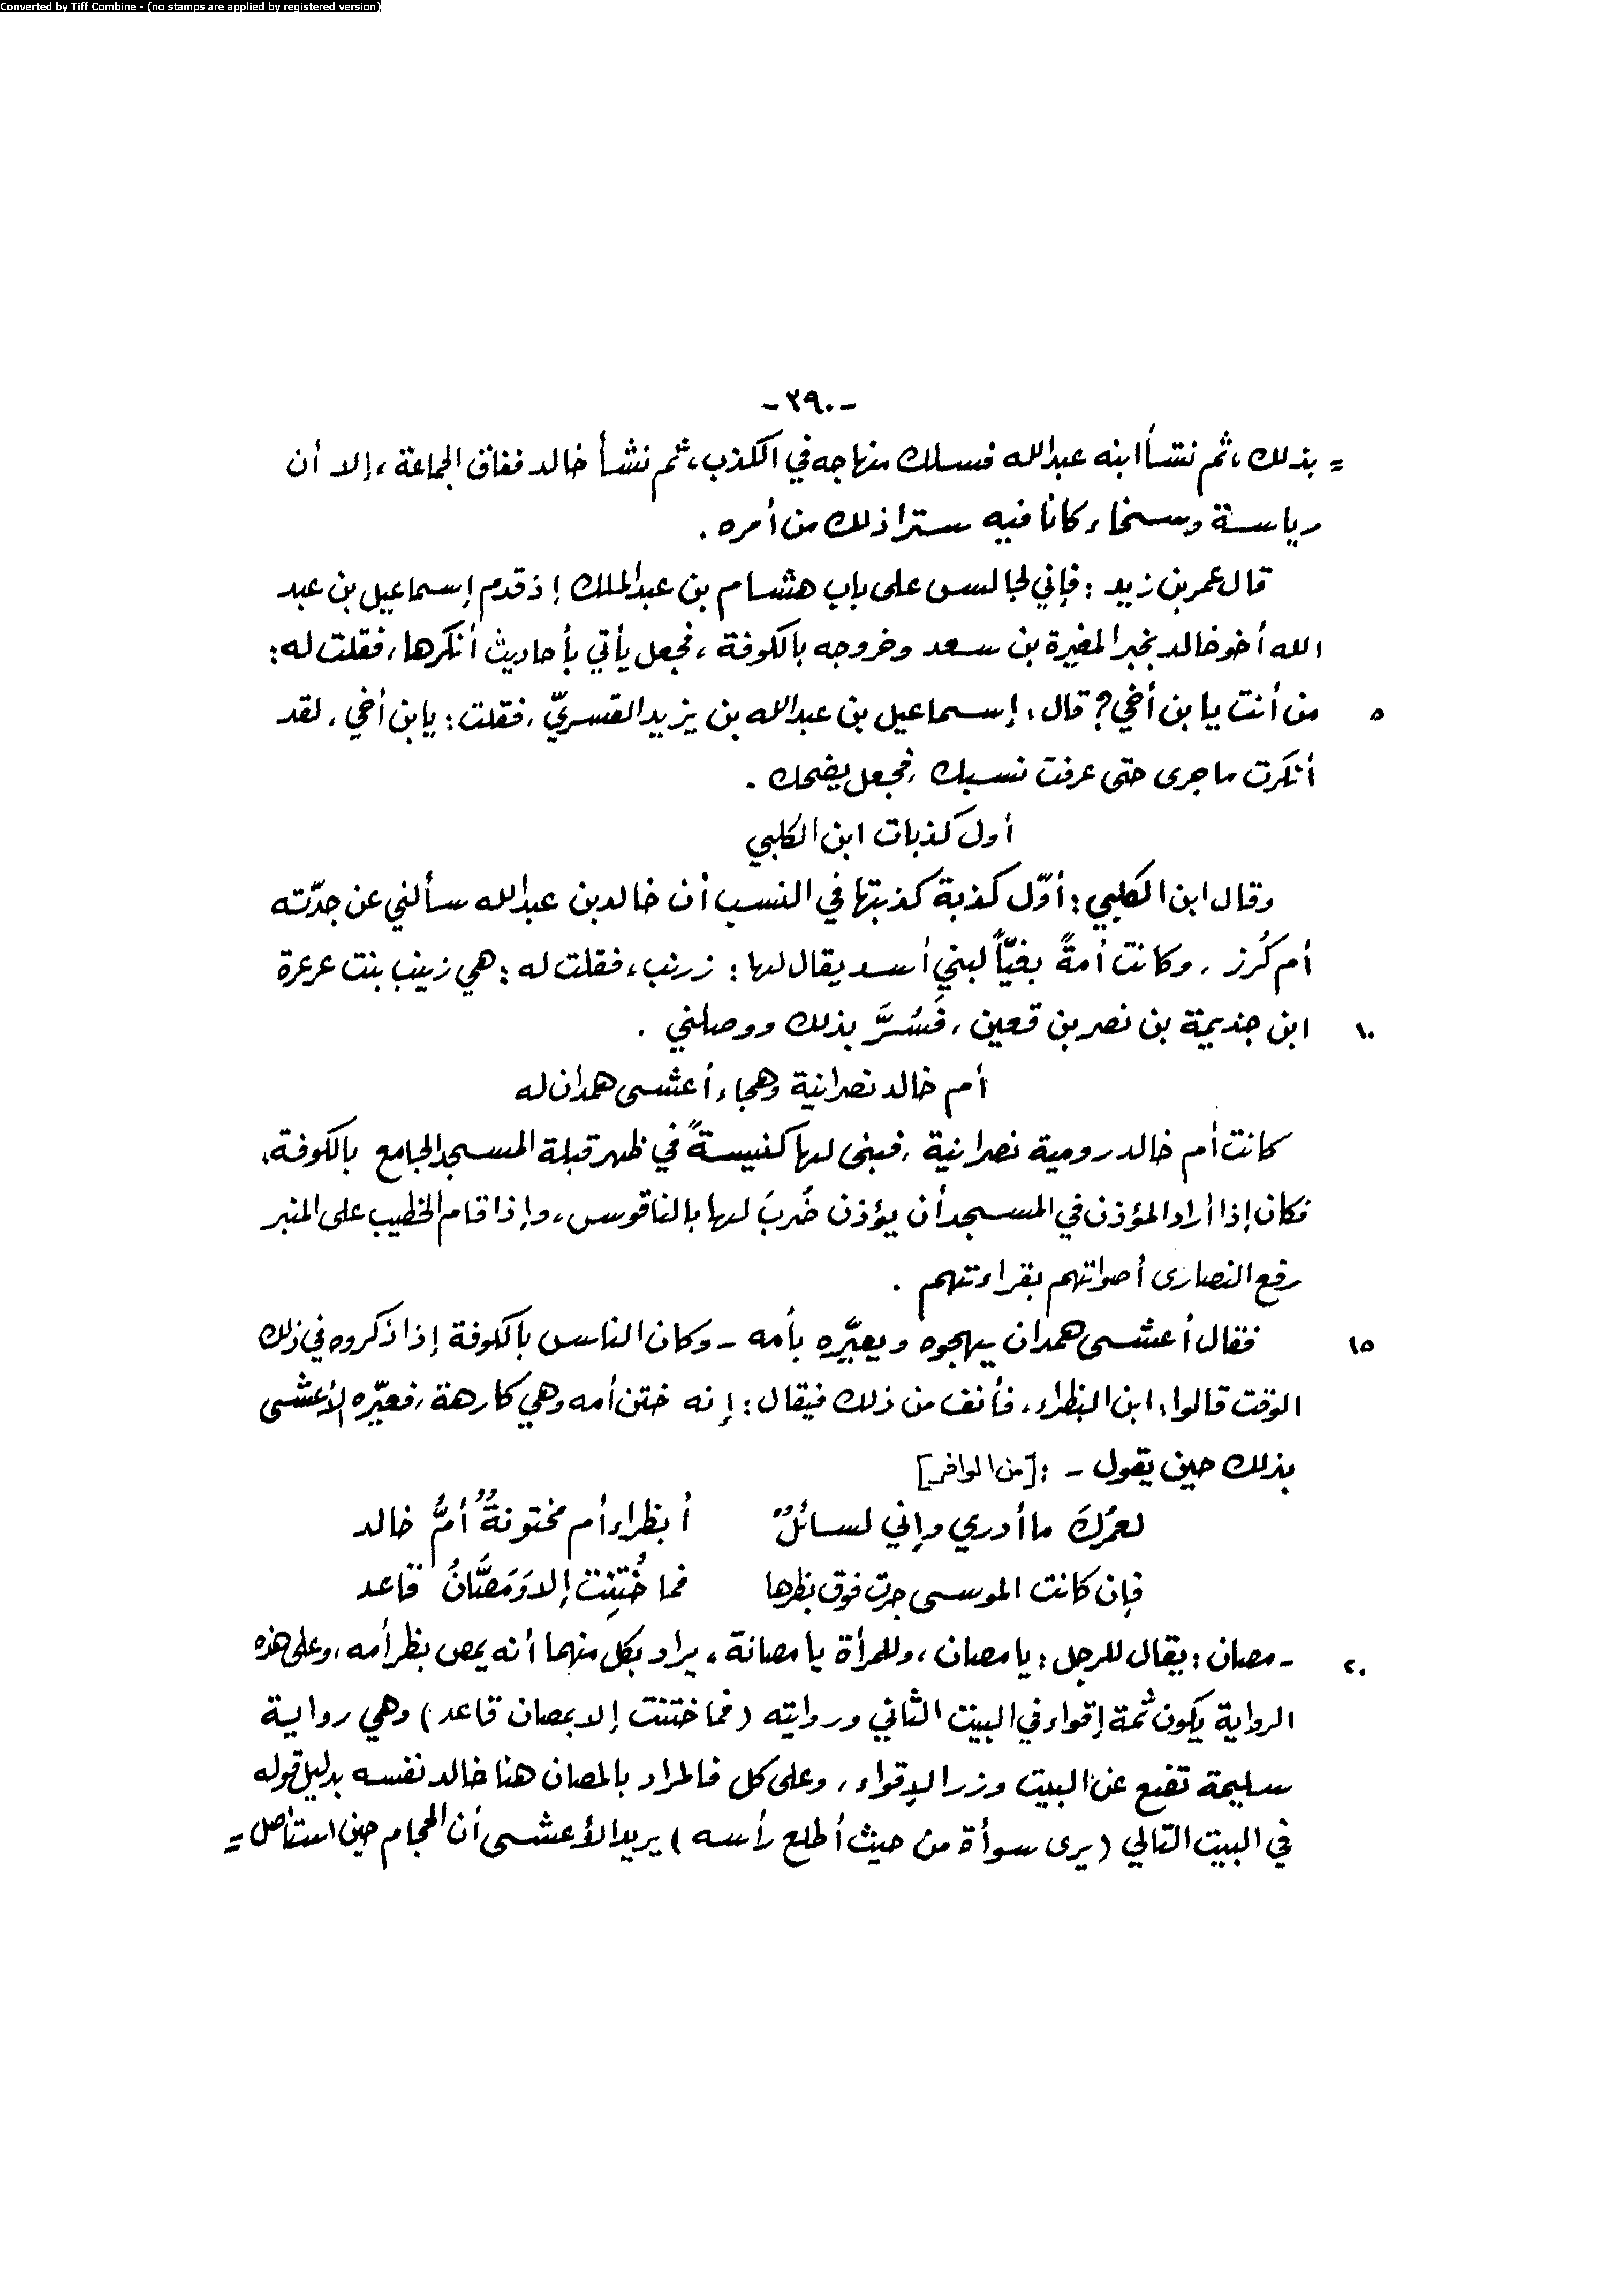 Converted by Tiff Combine - (no stamps are applied by registered version)
-٢٩٠-
= بذلك، ثم نشأ ابنه عبدالله فسلك منهاجه في الكذب، ثم نشأ خالد ففاق الجماعة، إلا أن
رياسة وسخاء كانا فيه سترا ذلك من أمره.
قال عمر بن زيد: فإني لجالس على باب هشام بن عبدالملك إذ قدم إسماعيل بن عبد
الله أخو خالد بخبر المغيرة بن سعد وخروجه بالكوفة، فجعل يأتي بأحاديث أنكرها، فقلت له:
٥ من أنت يا بن أخي؟ قال: إسماعيل بن عبدالله بن يزيد القسريّ، فقلت: يا بن أخي، لقد
أنكرت ما جرى حتى عرفت نسبك، فجعل يضحك.
أول كذبات ابن الكلبي
وقال ابن الكلبي: أوّل كذبة كذبتها في النسب أن خالد بن عبدالله سألني عن جدّته
أم كُرز، وكانت أمةً بغيّاً لبني أسد يقال لها: زرنب، فقلت له: هي زينب بنت عرعرة
١٠ ابن جذيمة بن نصر بن قعين، فَسُرَّ بذلك ووصلني.
أم خالد نصرانية وهجاء أعشى همدان له
كانت أم خالد رومية نصرانية، فبنى لها كنيسةً في ظهر قبلة المسجد الجامع بالكوفة،
فكان إذا أراد المؤذن في المسجد أن يؤذن ضُربَ لها بالناقوس، وإذا قام الخطيب على المنبر
رفع النصارى أصواتهم بقراءتهم.
١٥ فقال أعشى همدان يهجوه ويعيّره بأمه - وكان الناس بالكوفة إذا ذكروه في ذلك
الوقت قالوا: ابن البظراء، فأنف من ذلك فيقال: إنه ختن أمه وهي كارهة، فعيّره الأعشى
بذلك حين يقول -: [من الوافر]
لعمرُكَ ما أدري وإني لسائلٌ أبظراء أم مختونةٌ أمُّ خالد
فإن كانت الموسى جرت فوق بظرها فما خُتِنت إلا وَمَصَّانُ قاعد
٢٠ - مصان: يقال للرجل: يا مصان، وللمرأة يا مصانة، يراد بكل منهما أنه يمص بظر أمه، وعلى هذه
الرواية يكون ثمة إقواء في البيت الثاني وروايته (فما ختنت إلا بمصان قاعد) وهي رواية
سليمة تضع عن البيت وزر الإقواء، وعلى كل فالمراد بالمصان هنا خالد نفسه بدليل قوله
في البيت التالي (يرى سوأة من حيث أطلع رأسه) يريد الأعشى أن الحجام حين استأصل =